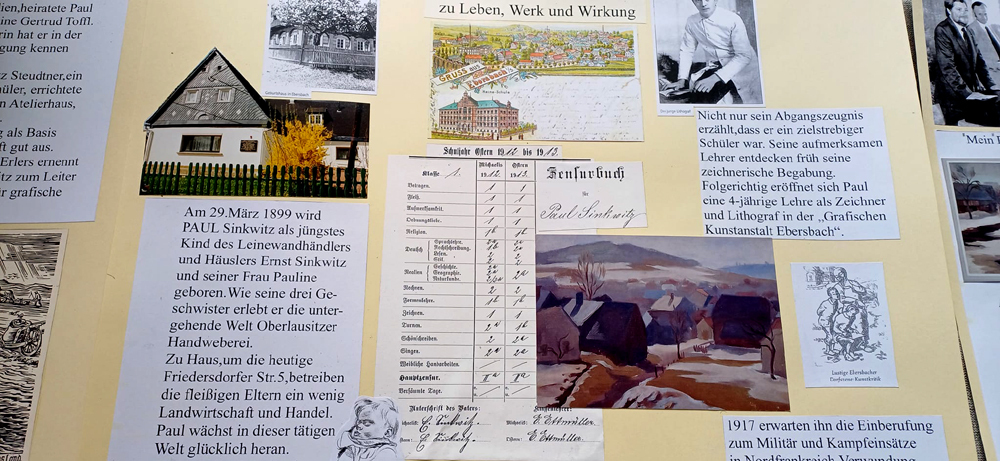 ien,heiratete Paul
ine Gertrud Toffl.
rin hat er in der
gung kennen
z Steudtner,ein
hüler, errichtete
n Atelierhaus,
g als Basis
ft gut aus.
Erlers ernennt
itz zum Leiter
ür grafische
Geburtshaus in Ebersbach
Am 29.März 1899 wird
PAUL Sinkwitz als jüngstes
Kind des Leinewandhändlers
und Häuslers Ernst Sinkwitz
und seiner Frau Pauline
geboren.Wie seine drei Ge-
schwister erlebt er die unter-
gehende Welt Oberlausitzer
Handweberei.
Zu Haus,um die heutige
Friedersdorfer Str.5,betreiben
die fleißigen Eltern ein wenig
Landwirtschaft und Handel.
Paul wächst in dieser tätigen
Welt glücklich heran.
zu Leben, Werk und Wirkung
GRUSS aus
Ebersbach
Schuljahr Ostern 1912 bis 1913.
Klasse 1.
Michaelis 1912
Ostern 1913.
Betragen. 1 1
Fleiß. 1 1
Aufmerksamkeit. 1 1
Ordnungsliebe. 1 1
Religion. 1b 1b
Deutsch
Sprachlehre.
Rechtschreibung.
Lesen.
Stil.
Realien
Geschichte.
Geographie.
Naturkunde.
Rechnen. 2 2
Formenlehre. 1b 1b
Zeichnen. 1 1
Turnen. 2a 1b
Schönschreiben. 2 2
Singen. 2a 2a
Weibliche Handarbeiten.
Hauptzensur. IIa IIa
Versäumte Tage.
Unterschrift des Vaters:
E. Sinkwitz.
E. Sinkwitz.
Klassenlehrer:
Michaelis: E. Ettmüller.
Ostern: E. Ettmüller.
Zensurbuch
für
Paul Sinkwitz
Nicht nur sein Abgangszeugnis
erzählt,dass er ein zielstrebiger
Schüler war. Seine aufmerksamen
Lehrer entdecken früh seine
zeichnerische Begabung.
Folgerichtig eröffnet sich Paul
eine 4-jährige Lehre als Zeichner
und Lithograf in der „Grafischen
Kunstanstalt Ebersbach“.
Lustige Ebersbacher
1917 erwarten ihn die Einberufung
zum Militär und Kampfeinsätze
in Nordfrankreich Verwundung
"Mein